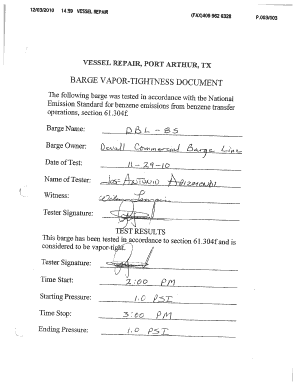 12/03/2010 14:59 VESSEL REPAIR (FAX)409 962 0328 P.003/003
VESSEL REPAIR, PORT ARTHUR, TX
BARGE VAPOR-TIGHTNESS DOCUMENT
The following barge was tested in accordance with the National
Emission Standard for benzene emissions from benzene transfer
operations, section 61.304f.
Barge Name: DBL-85
Barge Owner: Devall Commercial Barge Line
Date of Test: 11-29-10
Name of Tester: Jose Antonio
Witness:
Tester Signature:
TEST RESULTS
This barge has been tested in accordance to section 61.304f and is
considered to be vapor-tight.
Tester Signature:
Time Start: 2:00 PM
Starting Pressure: 1.0 PSI
Time Stop: 3:00 PM
Ending Pressure: 1.0 PSI